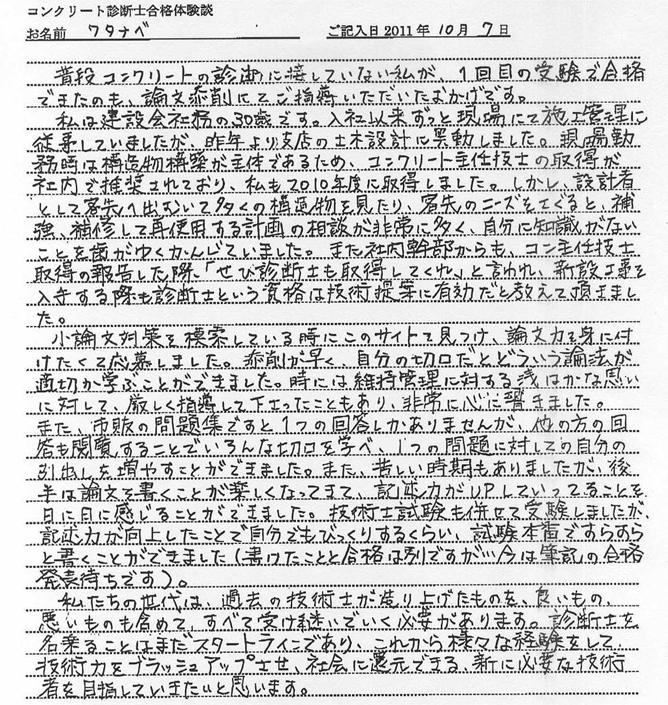 コンクリート診断士合格体験談
お名前 ワタナベ ご記入日 2011年 10月 7日
普段コンクリートの診断に接していない私が、1回目の受験で合格
できたのも、論文添削にてご指導いただいたおかげです。
私は建設会社務の30歳です。入社以来ずっと現場にて施工管理に
従事していましたが、昨年より支店の土木設計に異動しました。現場勤
務時は構造物構築が主体であるため、コンクリート主任技士の取得が
社内で推奨されており、私も2010年度に取得しました。しかし、設計者
として客先へ出むいて多くの構造物を見たり、客先のニーズをさぐると、補
強、補修して再使用する計画の相談が非常に多く、自分に知識がない
ことを歯がゆくかんじていました。また社内幹部からも、コン主任技士
取得の報告した際、「ぜひ診断士も取得してくれ」と言われ、新設工事を
入手する際も診断士という資格は技術提案に有効だと教えて頂きまし
た。
小論文対策を模索している時にこのサイトを見つけ、論文力を身に付
けたくて応募しました。添削が早く、自分の切口だとどういう論法が
適切か学ぶことができました。時には維持管理に対する浅はかな思い
に対して、厳しく指導して下さったこともあり、非常に心に響きました。
また、市販の問題集ですと1つの回答しかありませんが、他の方の回
答も閲覧することでいろんな切口を学べ、1つの問題に対しての自分の
引出しを増やすことができました。また、苦しい時期もありましたが、後
半は論文を書くことが楽しくなってきて、記述力がUPしていってることを
日に日に感じることができました。技術士試験も併せて受験しましたが、
記述力が向上したことで自分でもびっくりするくらい、試験本番ですらすら
と書くことができました(書けたことと合格は別ですが…今は筆記の合格
発表待ちです)。
私たちの世代は、過去の技術士が造り上げたものを、良いもの、
悪いものも含めて、すべて受け継いでいく必要があります。診断士を
名乗ることはまだスタートラインであり、これから様々な経験をして、
技術力をブラッシュアップさせ、社会に還元できる、新に必要な技術
者を目指していきたいと思います。